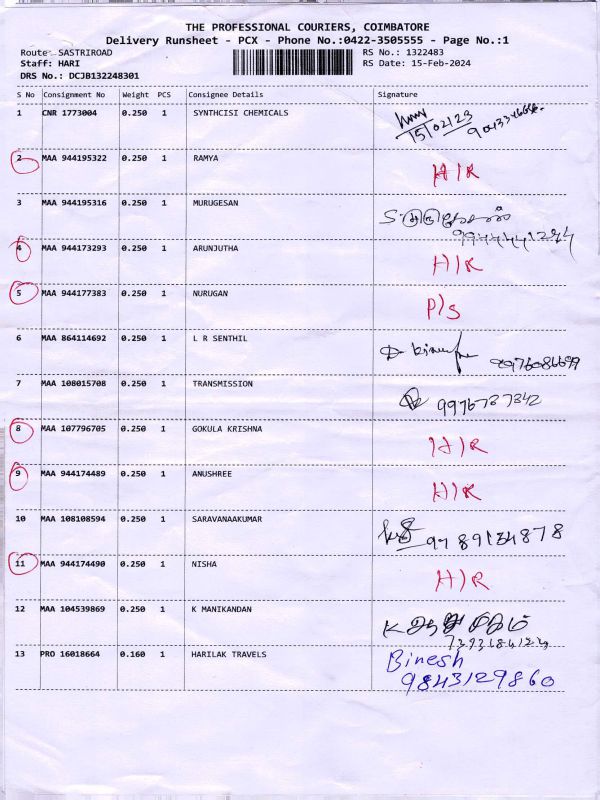 THE PROFESSIONAL COURIERS, COIMBATORE
Delivery Runsheet - PCX - Phone No.:0422-3505555 - Page No.:1
Route: SASTRIROAD RS No.: 1322483
Staff: HARI RS Date: 15-Feb-2024
DRS No.: DCJB132248301
S No Consignment No Weight PCS Consignee Details Signature
1 CNR 1773004 0.250 1 SYNTHCISI CHEMICALS
15/02/23
2 MAA 944195322 0.250 1 RAMYA H/R
3 MAA 944195316 0.250 1 MURUGESAN
4 MAA 944173293 0.250 1 ARUNJUTHA H/R
5 MAA 944177383 0.250 1 NURUGAN P/S
6 MAA 864114692 0.250 1 L R SENTHIL
7 MAA 108015708 0.250 1 TRANSMISSION 9976737342
8 MAA 107796705 0.250 1 GOKULA KRISHNA H/R
9 MAA 944174489 0.250 1 ANUSHREE H/R
10 MAA 108108594 0.250 1 SARAVANAAKUMAR 9789134878
11 MAA 944174490 0.250 1 NISHA H/R
12 MAA 104539869 0.250 1 K MANIKANDAN
13 PRO 16018664 0.160 1 HARILAK TRAVELS Binesh
9843129860